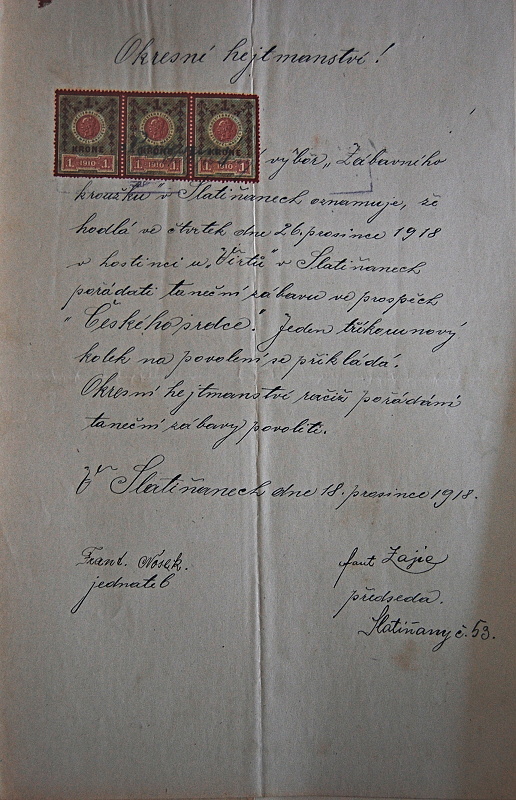 Okresní hejtmanství!
1 1 1
KRONE KRONE KRONE
1 1910 1 1 1910 1 1 1910 1
výbor „Zábavního
kroužku" v Slatiňanech oznamuje, že
hodlá ve čtvrtek dne 26. prosince 1918
v hostinci u „Virtů" v Slatiňanech
pořádati taneční zábavu ve prospěch
"Českého srdce". Jeden tříkorunový
kolek na povolení se přikládá.
Okresní hejtmanství račiž pořádání
taneční zábavy povoliti.
V Slatiňanech dne 18. prosince 1918.
Frant. Nosek.
jednatel
Zajíc
předseda.
Slatiňany č. 53.